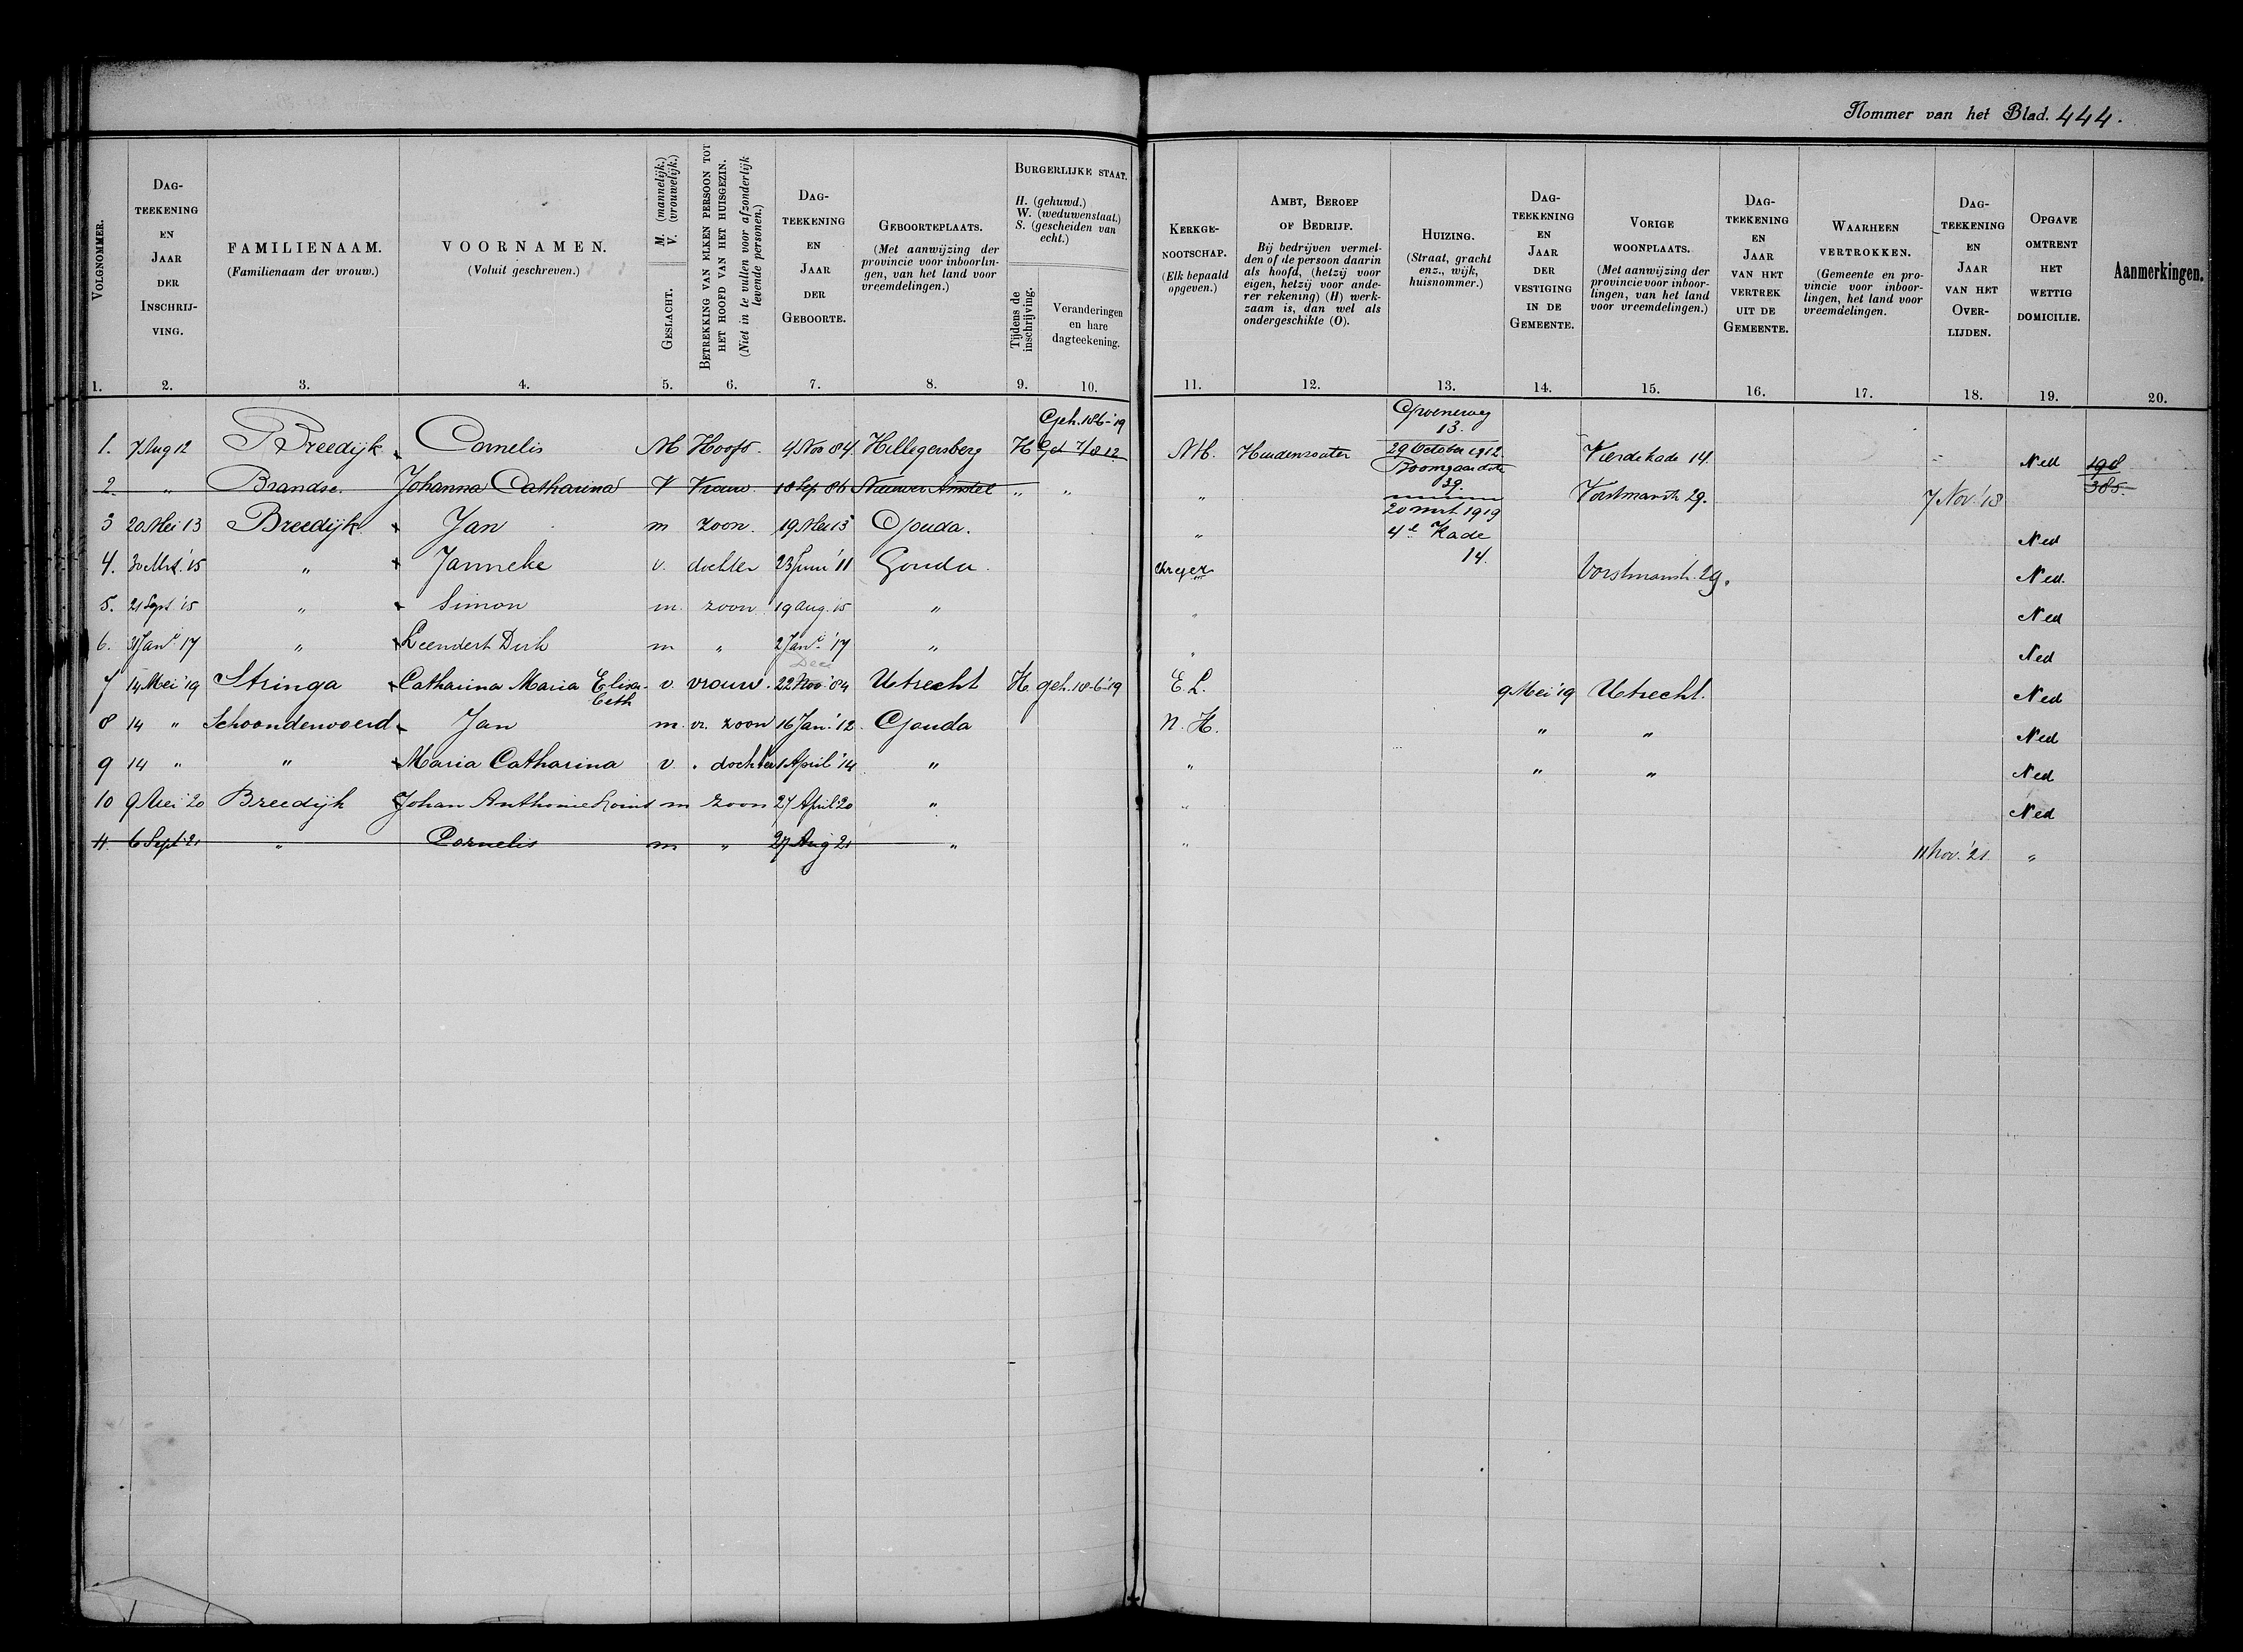 Nommer van het Blad. 444.
VOLGNOMMER.
DAG-
TEEKENING
EN
JAAR
DER
INSCHRIJ-
VING.
FAMILIENAAM.
(Familienaam der vrouw.)
VOORNAMEN.
(Voluit geschreven.)
M. (mannelijk.)
V. (vrouwelijk.)
GESLACHT.
BETREKKING VAN ELKEN PERSOON TOT
HET HOOFD VAN HET HUISGEZIN.
(Niet in te vullen voor afzonderlijk
levende personen.)
DAG-
TEEKENING
EN
JAAR
DER
GEBOORTE.
GEBOORTEPLAATS.
(Met aanwijzing der
provincie voor inboorlin-
gen, van het land voor
vreemdelingen.)
BURGERLIJKE STAAT.
H. (gehuwd.)
W. (weduwenstaat.)
S. (gescheiden van
echt.)
Tijdens de
inschrijving.
Veranderingen
en hare
dagteekening.
KERKGE-
NOOTSCHAP.
(Elk bepaald
opgeven.)
AMBT, BEROEP
OF BEDRIJF.
Bij bedrijven vermel-
den of de persoon daarin
als hoofd, (hetzij voor
eigen, hetzij voor ande-
rer rekening) (H) werk-
zaam is, dan wel als
ondergeschikte (O).
HUIZING.
(Straat, gracht
enz., wijk,
huisnommer.)
DAG-
TEEKENING
EN
JAAR
DER
VESTIGING
IN DE
GEMEENTE.
VORIGE
WOONPLAATS.
(Met aanwijzing der
provincie voor inboor-
lingen, van het land
voor vreemdelingen.)
DAG-
TEEKENING
EN
JAAR
VAN HET
VERTREK
UIT DE
GEMEENTE.
WAARHEEN
VERTROKKEN.
(Gemeente en pro-
vincie voor inboor-
lingen, het land voor
vreemdelingen.
DAG-
TEEKENING
EN
JAAR
VAN HET
OVER-
LIJDEN.
OPGAVE
OMTRENT
HET
WETTIG
DOMICILIE.
Aanmerkingen.
1. 2. 3. 4. 5. 6. 7. 8. 9. 10. 11. 12. 13. 14. 15. 16. 17. 18. 19. 20.
Geh. 18-6-'19
Groeneweg
13.
1. 7 Aug 12 Breedijk Cornelis M Hoofd. 4 Nov 84 Hillegersberg H Geh 7/8 12 NH. 29 October 1912 Vierdekade 14. Ned 198
Boomgaardstr
39.
2. " Brandse. Johanna Catharina V Vrouw. 18 Sep 86 Nieuwer Amstel " " " Vorstmanstr 29. 7 Nov '18 385.
20 mrt 1919
3 20 Mei 13 Breedijk Jan m zoon. 19 Mei 13 Gouda. " 4e Kade Ned
14.
4. 30 Mrt. '15 " Janneke v. dochter 23 Juni '11 Gouda. Vorstmanstr. 29. Ned.
5. 21 Sept '15 " Simon m. zoon. 19 Aug. 15 " " Ned
6. 3 Jan. 17 " Leendert Dirk m " 2 Jan. '17 " " Ned
Dec
7 14 Mei '19 Stringa Catharina Maria Elisa- v. vrouw. 22 Nov '84 Utrecht H. geh. 18-6-'19 E.L. 9 Mei '19 Utrecht. Ned
beth
8 14 " Schoonderwoerd Jan m. vr. zoon 16 Jan. '12. Gouda N.H. " " Ned
9 14 " " Maria Catharina v. " dochter 1 April '14 " " " " Ned
10 9 Mei '20 Breedijk Johan Anthonie m zoon 27 April '20 " " Ned
11. 6 Sept '21 " Cornelis m " 27 Aug 21 " " 11 Nov. '21. "